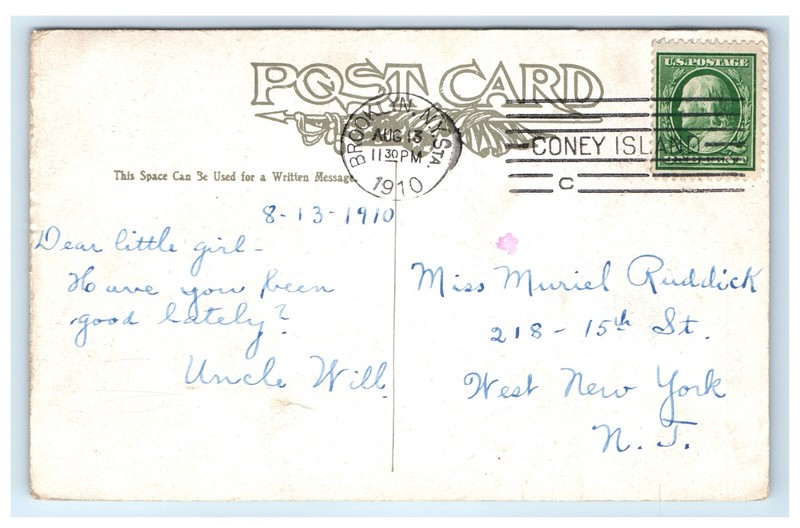 POST CARD
U.S.POSTAGE
BROOKLYN, N.Y. STA.
AUG 13
11 30 PM
1910
CONEY ISLAND
C
This Space Can Be Used for a Written Message.
8-13-1910
Dear little girl-
Have you been
good lately?
Uncle Will.
Miss Muriel Ruddick
218-15th St.
West New York
N. J.